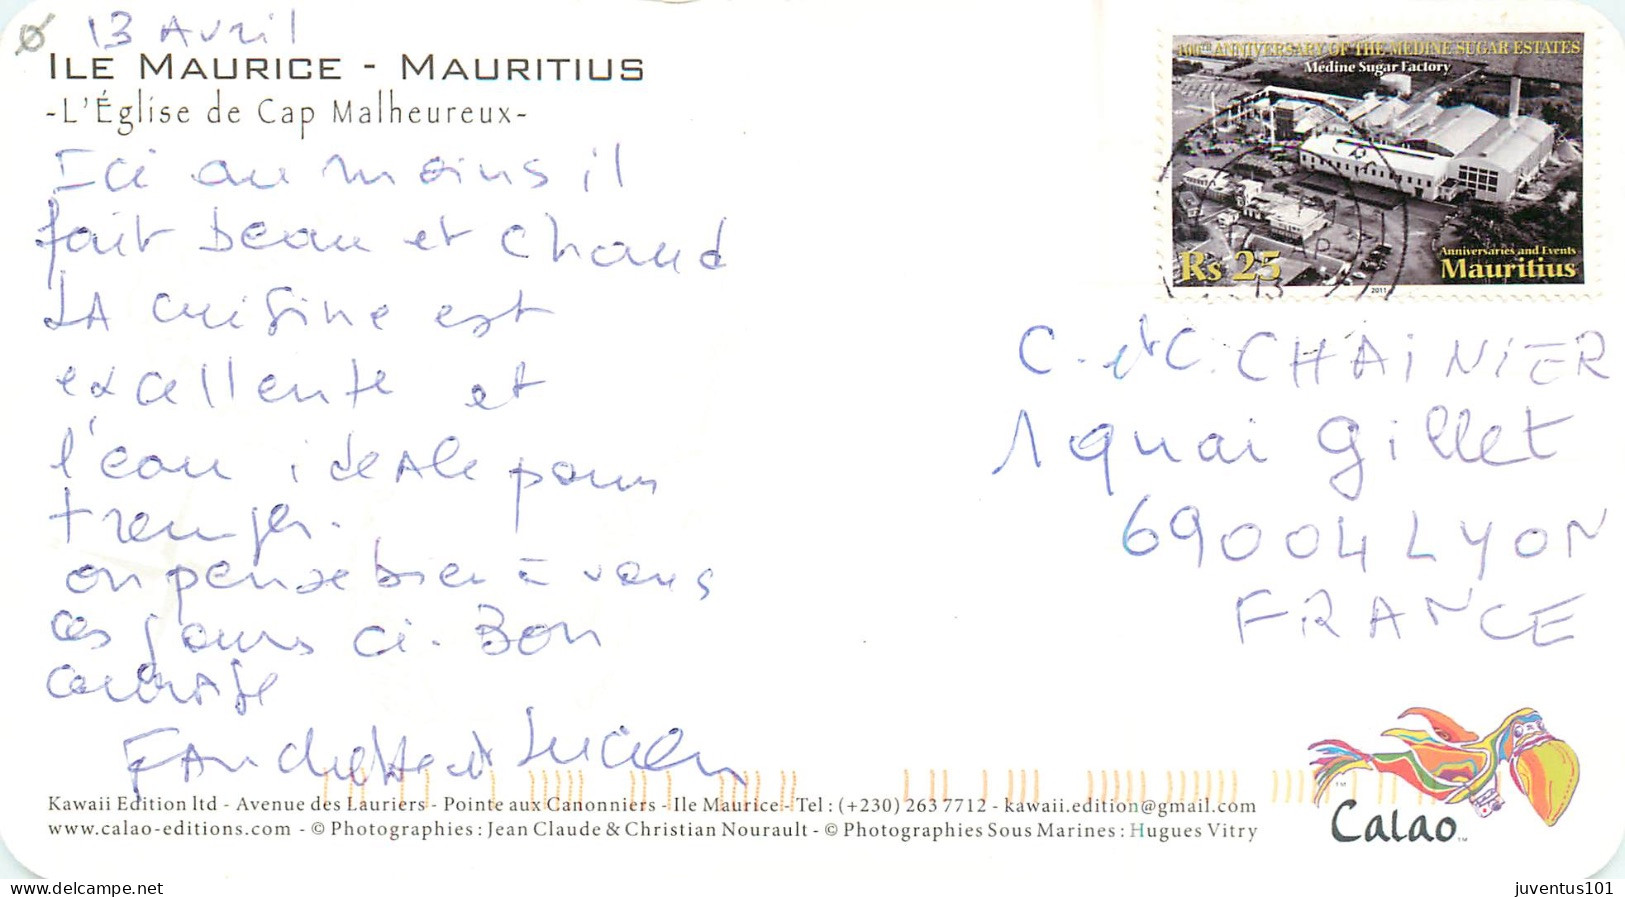 13 Avril
ILE MAURICE - MAURITIUS
-L'Église de Cap Malheureux-
Ici au moins il
fait beau et chaud
LA cuisine est
excellente et
l'eau ideale pour
tremper.
on pense bien à vous
ces jours ci. Bon
courage
FAnchette et Lucien
100TH ANNIVERSARY OF THE MEDINE SUGAR ESTATES
Médine Sugar Factory
Anniversaries and Events
Rs 25 Mauritius
2011
13
C. et C. CHAINIER
1 quai Gillet
69004 LYON
FRANCE
Kawaii Edition ltd - Avenue des Lauriers - Pointe aux Canonniers - Ile Maurice - Tel : (+230) 263 7712 - kawaii.edition@gmail.com
www.calao-editions.com - © Photographies : Jean Claude & Christian Nourault - © Photographies Sous Marines : Hugues Vitry
Calao™
delcampe.net
juventus101